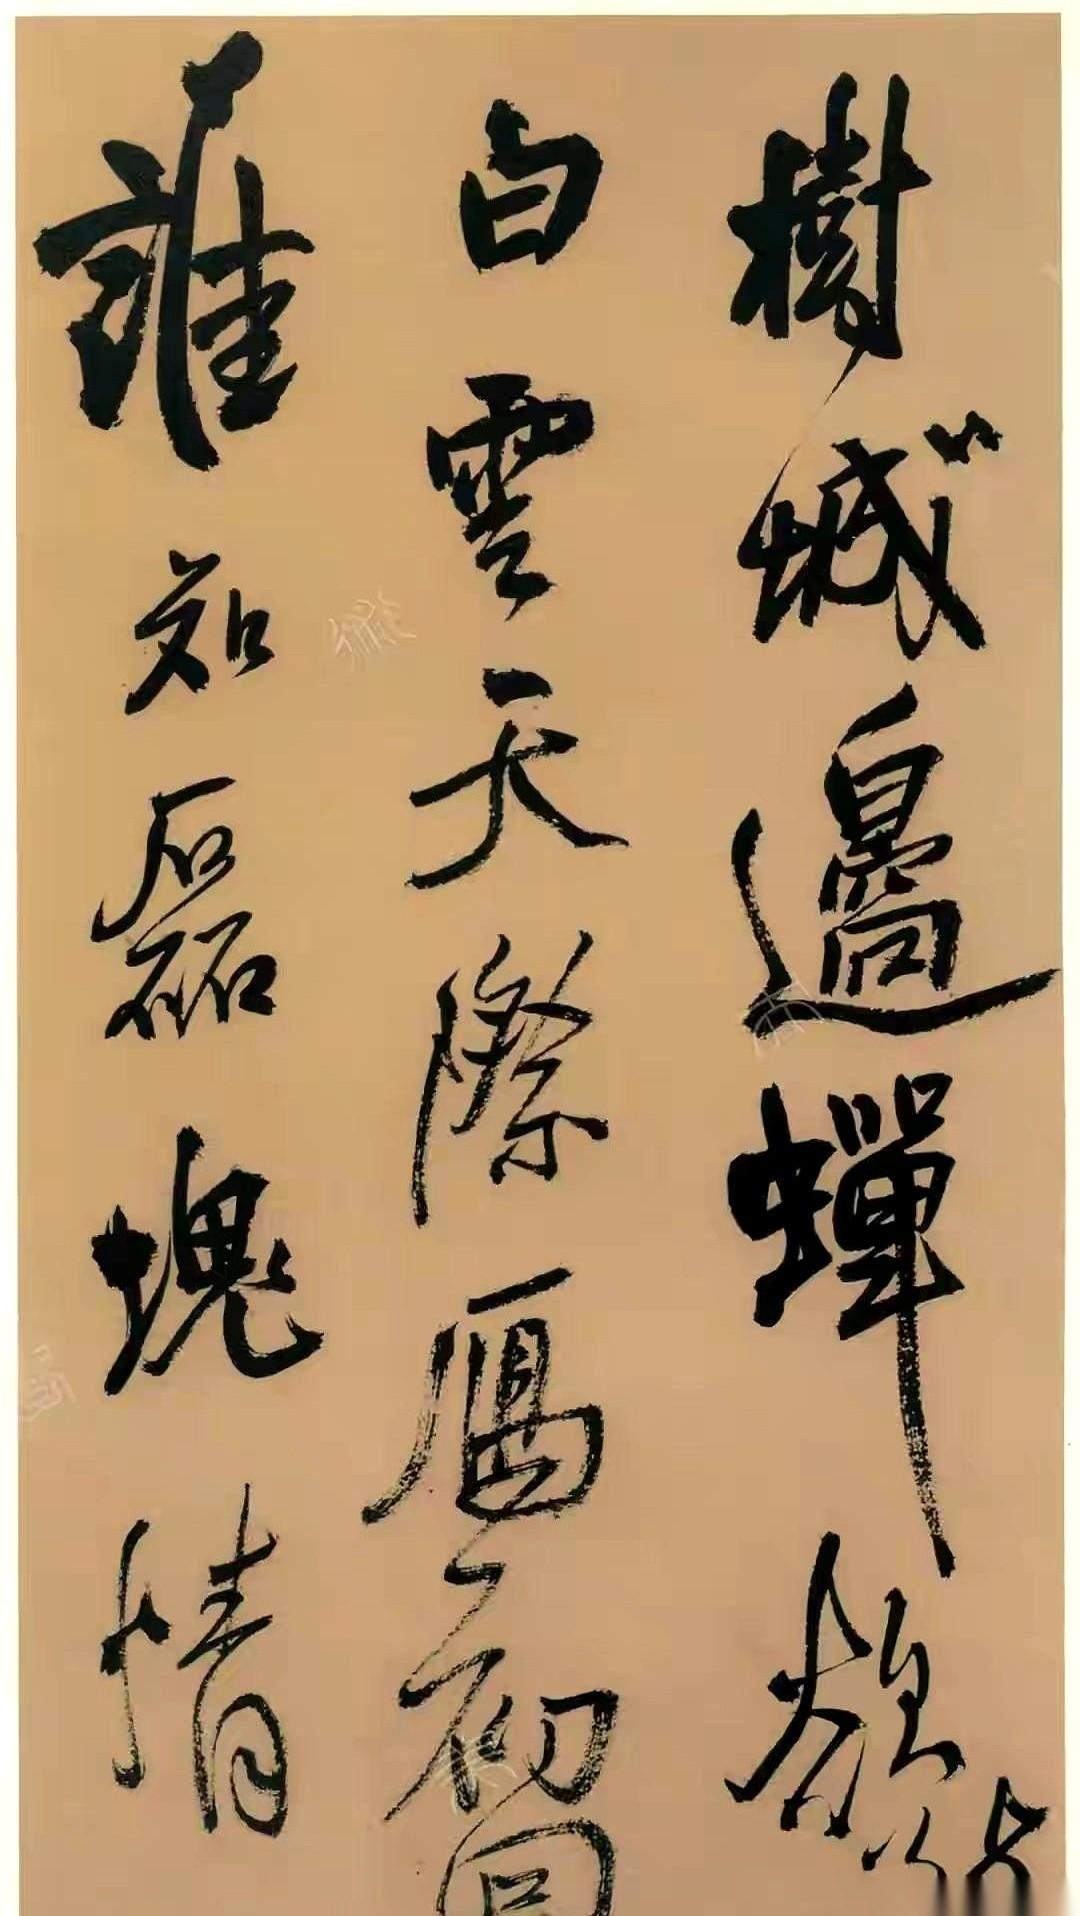 樹城邊蟬
白雲天際雁初回
誰知磊塊情